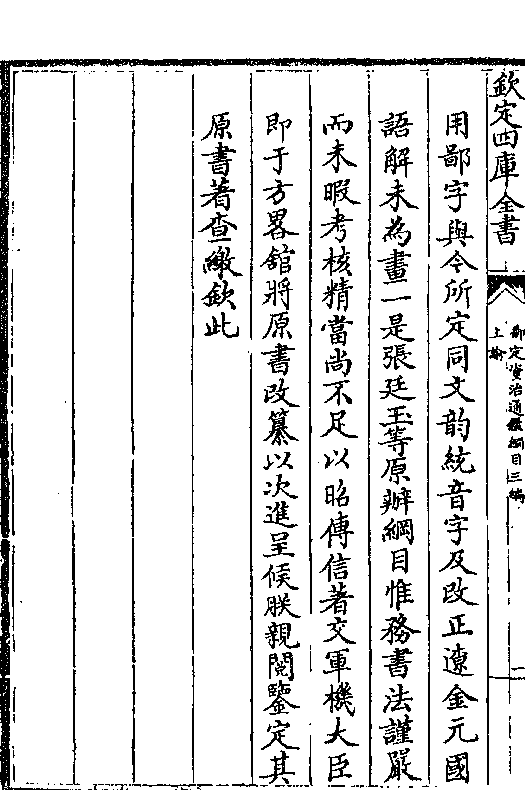 欽定四庫全書
御定資治通鑑綱目三編
上諭
一
用鄙字與今所定同文韵統音字及改正遼金元國
語解未為畫一是張廷玉等原辦綱目惟務書法謹嚴
而未暇考核精當尚不足以昭傳信著交軍機大臣
即于方畧舘將原書改纂以次進呈候朕親閱鑒定其
原書著查繳欽此